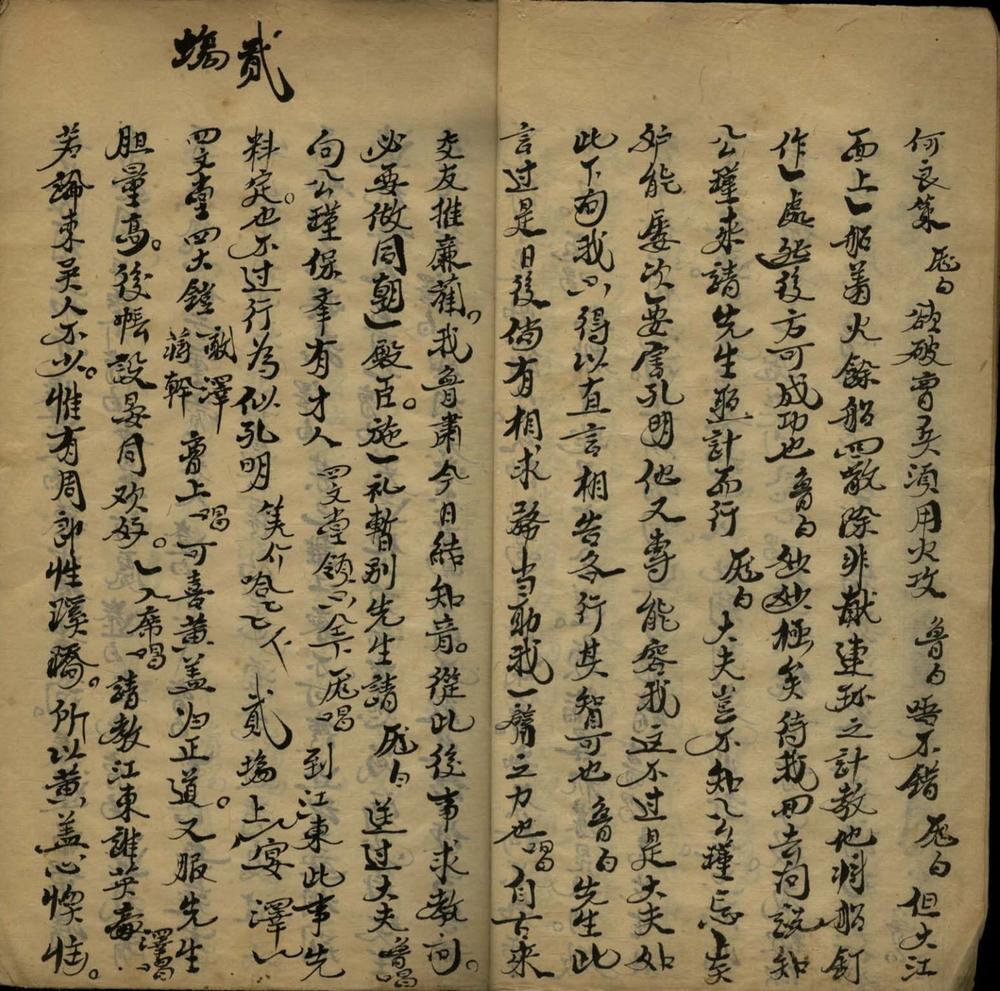 何良策 庞白 欲破曹兵須用火攻 魯白 唔不錯 庞白 但大江
面上一船着火餘船四散除非献連环之計教他將船釘
作一處然後方可成功也 魯白 妙妙極矣待我回去问説知
公瑾來請先生照計而行 庞白 大夫豈不知公瑾忌
妒能屡次要害孔明他又專能容我这不过是大夫如
此下问我不得以直言相告各行其智可也 魯白 先生此
言过是日後倘有相求務当助我一臂之力也唱自古来
交友推廉藺。我魯肅今日結知音。從此後事求教问。
必要做同朝一殿臣。施一礼暫别先生請 庞白 送过大夫 魯唱
向公瑾保奉有才人 四文堂領下 庞唱 到江東此事先
料定。也不过行為似孔明 笑介哈乙乙下 貳場上宴 澤
四文堂四大鎧 闞澤 蒋幹 曹上唱 可喜黄盖归正道。又服先生
胆量高。後帳設宴同欢好。 入席唱 請教江東誰英豪 澤唱
若論東吴人不少。惟有周郎性蹊蹺。所以黄盖心懊恼。
貳場